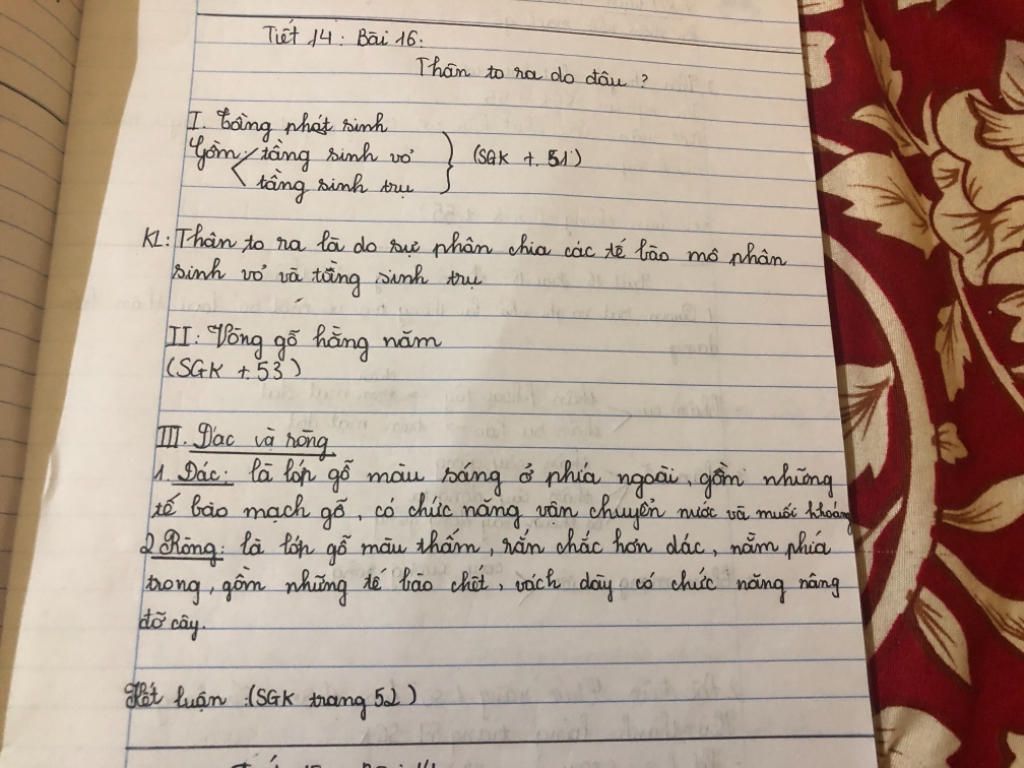 Tiết 14: Bài 16:
Thân to ra do đâu?
I. Tầng phát sinh
Gồm: tầng sinh vỏ
tầng sinh trụ
(SGK t. 51)
KL: Thân to ra là do sự phân chia các tế bào mô phân
sinh vỏ và tầng sinh trụ
II: Vòng gỗ hằng năm
(SGK t. 53)
III. Dác và ròng
1. Dác: là lớp gỗ màu sáng ở phía ngoài, gồm những
tế bào mạch gỗ, có chức năng vân chuyển nước và muối khoáng
2 Ròng: là lớp gỗ màu thẫm, rắn chắc hơn dác, nằm phía
trong, gồm những tế bào chết, vách dày có chức năng nâng
đỡ cây.
Kết luận: (SGK trang 52)